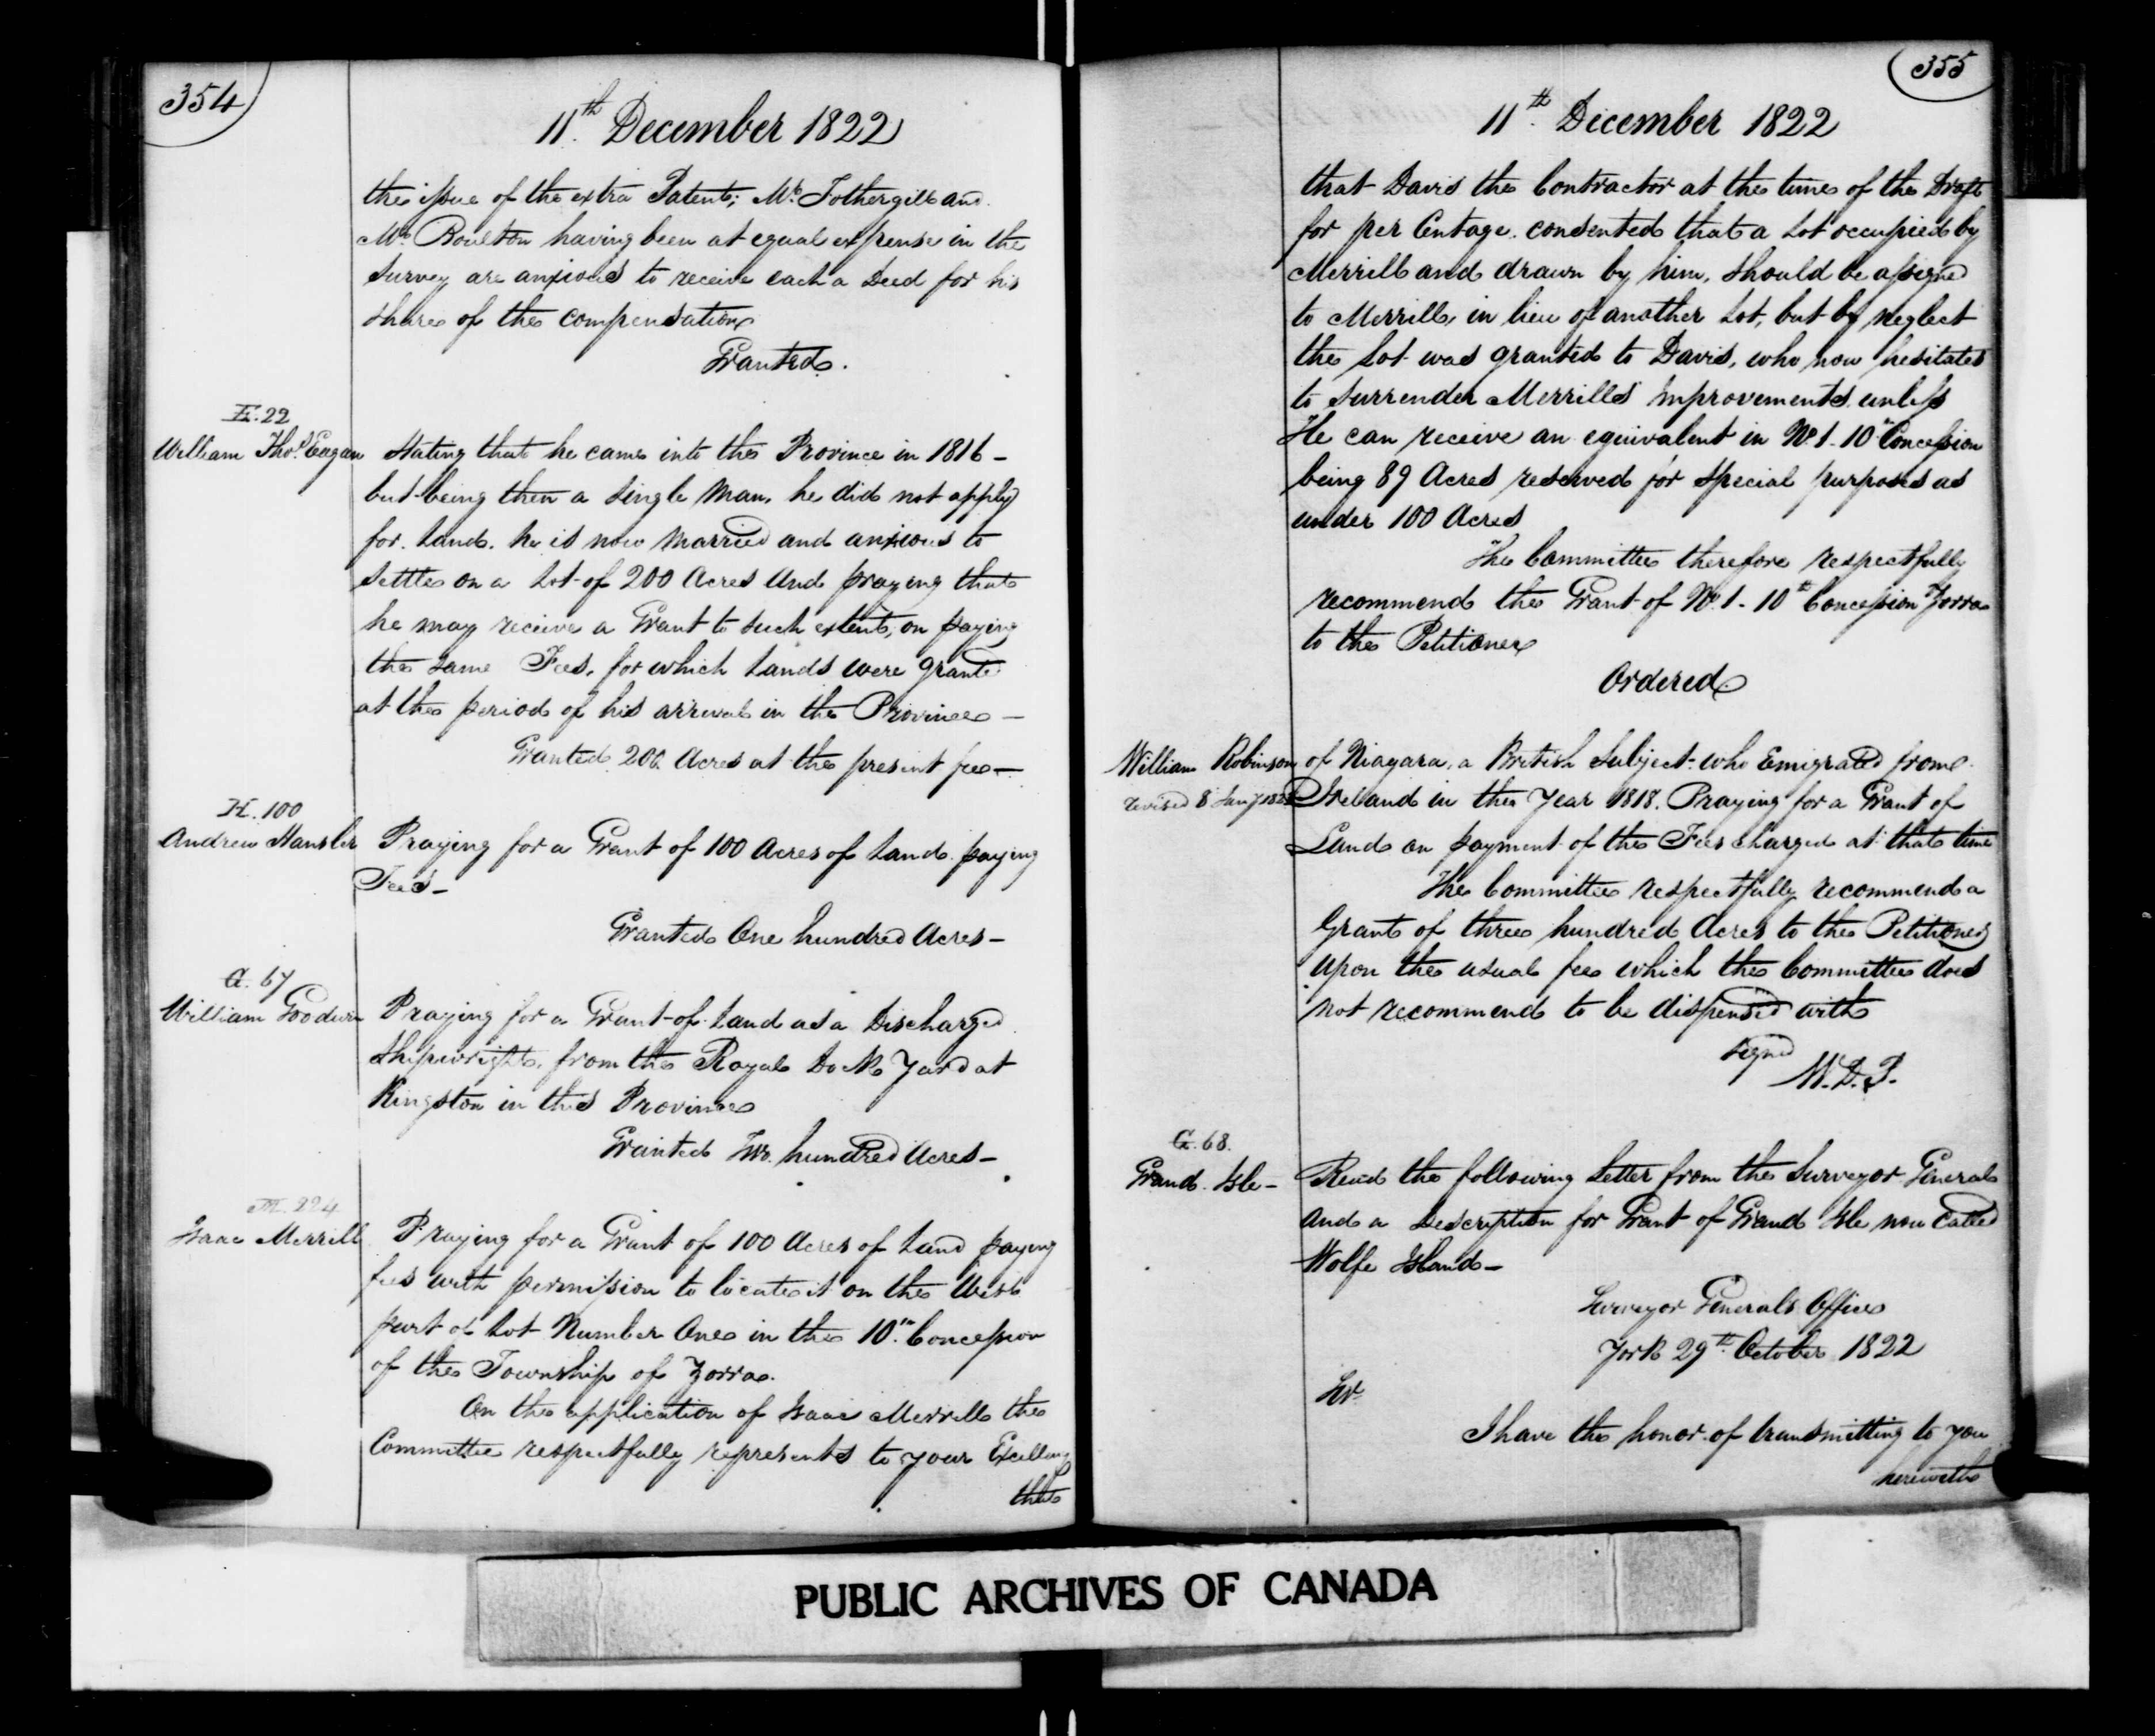 354
11th December 1822
the issue of the extra Patent; Mr Fothergill and
Mr Boulton having been at equal expense in the
Survey are anxious to receive each a Deed for his
share of the compensation
Granted.
E. 22
William Thos. Eagan Stating that he came into the Province in 1816 –
but being then a single Man, he did not apply
for Land. he is now Married and anxious to
settle on a Lot of 200 Acres And praying that
he may recieve a Grant to such extent, on paying
the same Fees, for which Lands were granted
at the period of his arrival in the Province –
Granted 200 Acres at the present fee –
H. 100
Andrew Hansler Praying for a Grant of 100 Acres of Land paying
Fees –
Granted One hundred Acres –
G. 67
William Goodwin Praying for a Grant of Land as a Discharged
Shipwright, from the Royal Dock Yard at
Kingston in this Province
Granted Two hundred Acres –
M. 224
Isaac Merrill Praying for a Grant of 100 Acres of Land paying
fees with permission to locate it on the West
part of Lot Number One in the 10th Concession
of the Township of Zorra.
On the application of Isaac Merrill the
Committee respectfully represents to your Excellency
that
355
11th December 1822
that Davis the Contractor at the time of the Draft
for per Centage consented that a Lot occupied by
Merrill and drawn by him, should be assigned
to Merrill, in lieu of another Lot, but by neglect
the Lot was granted to Davis, who now hesitates
to surrender Merrills Improvements unless
He can receive an equivalent in No. 1 - 10th Concession
being 89 Acres reserved for special purposes as
under 100 Acres
The Committee therefore respectfully
recommend the Grant of No. 1 - 10th Concession Zorra
to the Petitioner
Ordered
William Robinson of Niagara, a British Subject who Emigrated from
revised 8 Jany Ireland in the Year 1818. Praying for a Grant of
Land on payment of the Fees charged at that time
The Committee respectfully recommend a
Grant of three hundred Acres to the Petitioner
upon the usual fees which the Committee does
not recommend to be dispensed with
signed
W. D. P.
G. 68.
Grand Isle – Read the following Letter from the Surveyor General
and a Description for Grant of Grand Isle now Called
Wolfe Island –
Surveyor Generals Office
York 29th October 1822
Sir
I have the honor of transmitting to you
herewith
PUBLIC ARCHIVES OF CANADA